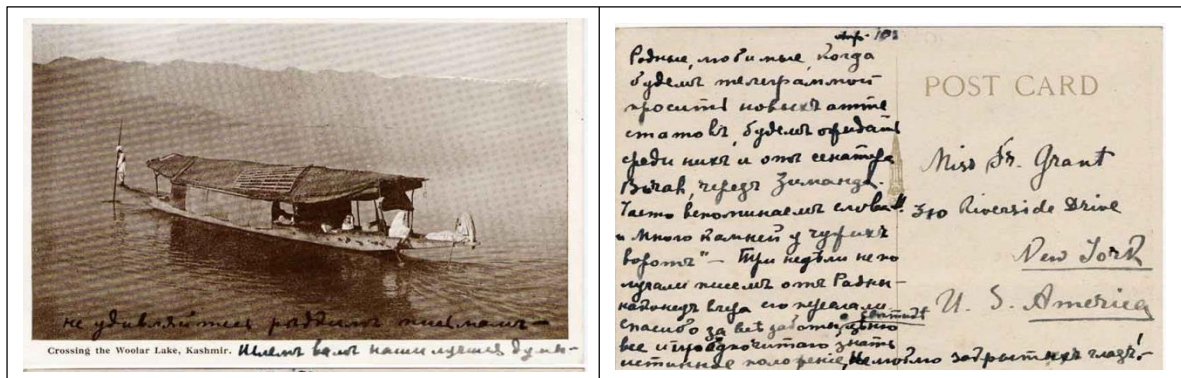 не удивляйтесь рѣдкимъ письмамъ —
Crossing the Woolar Lake, Kashmir. Шлемъ вамъ наши лучшія думы-
Родные, любимые, когда
будемъ телеграммой
просить новыхъ атте
статовъ, будемъ ожидать
среди нихъ и отъ сенатора
Borah, черезъ Зиманда.
Часто вспоминаемъ слова
и много камней у чужихъ
воротъ" — Три недѣли не по
лучали писемъ отъ Радны -
наконецъ вчера его
спасибо за всѣ заботы
все и предпочитаю знать
истинное положеніе, Не люблю закрытыхъ глазъ! -
POST CARD
Miss Fr. Grant
310 Riverside Drive
New York
U. S. America